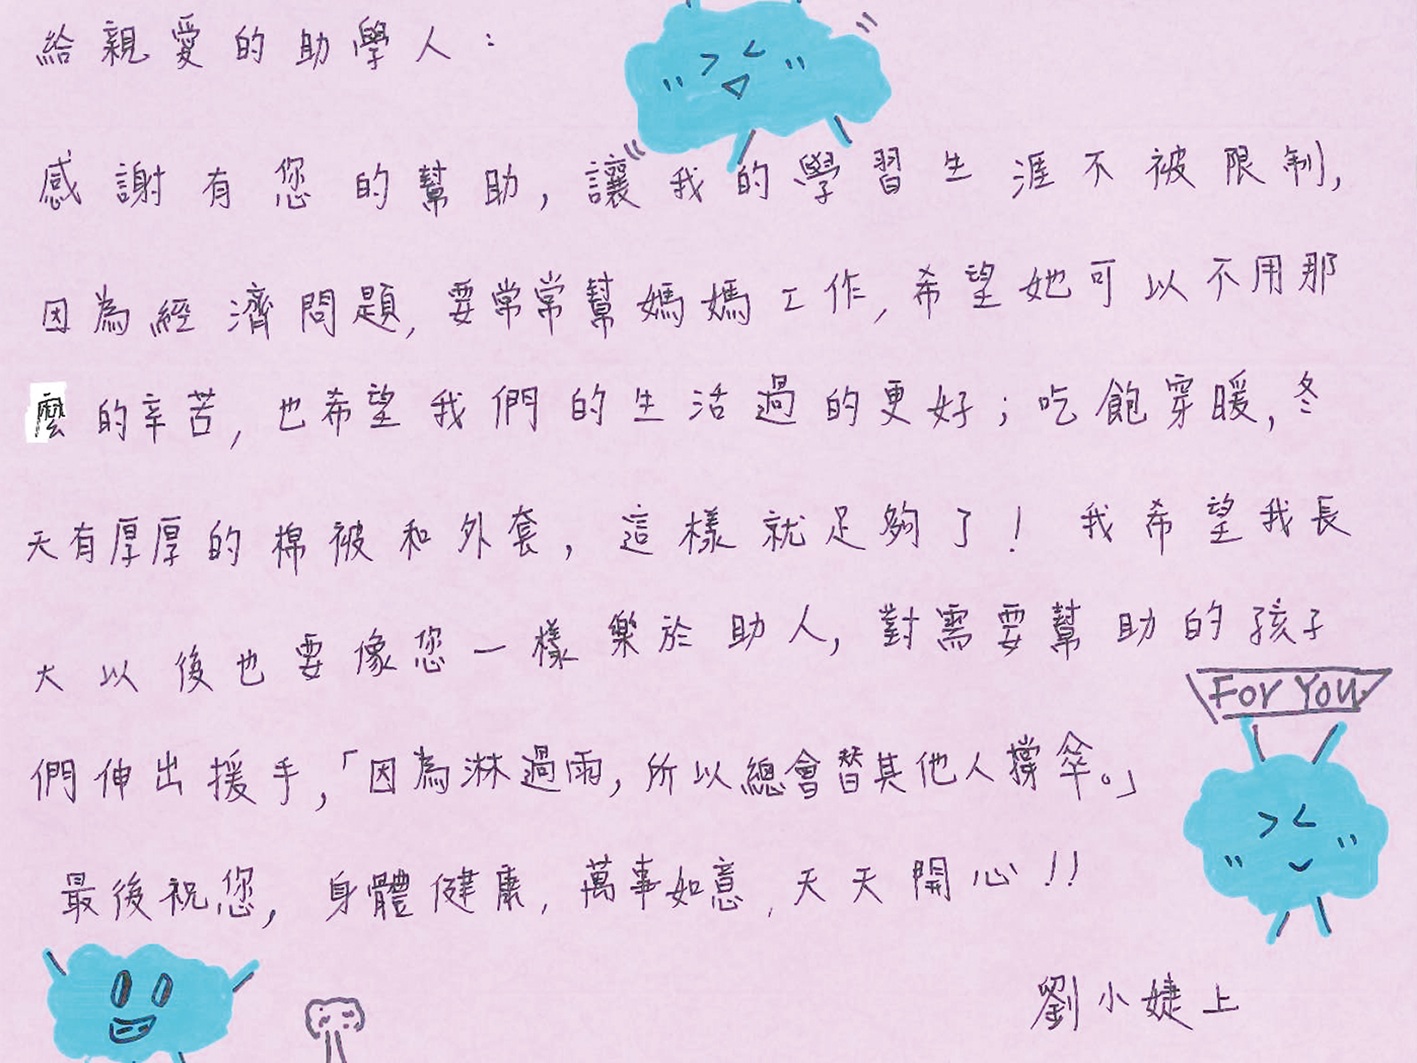 給親愛的助學人：
感謝有您的幫助，讓我的學習生涯不被限制，
因為經濟問題，要常常幫媽媽工作，希望她可以不用那
麼的辛苦，也希望我們的生活過的更好；吃飽穿暖，冬
天有厚厚的棉被和外套，這樣就足夠了！我希望我長
大以後也要像您一樣樂於助人，對需要幫助的孩子
們伸出援手，「因為淋過雨，所以總會替其他人撐傘。」
最後祝您，身體健康，萬事如意，天天開心!!
For You
劉小婕上